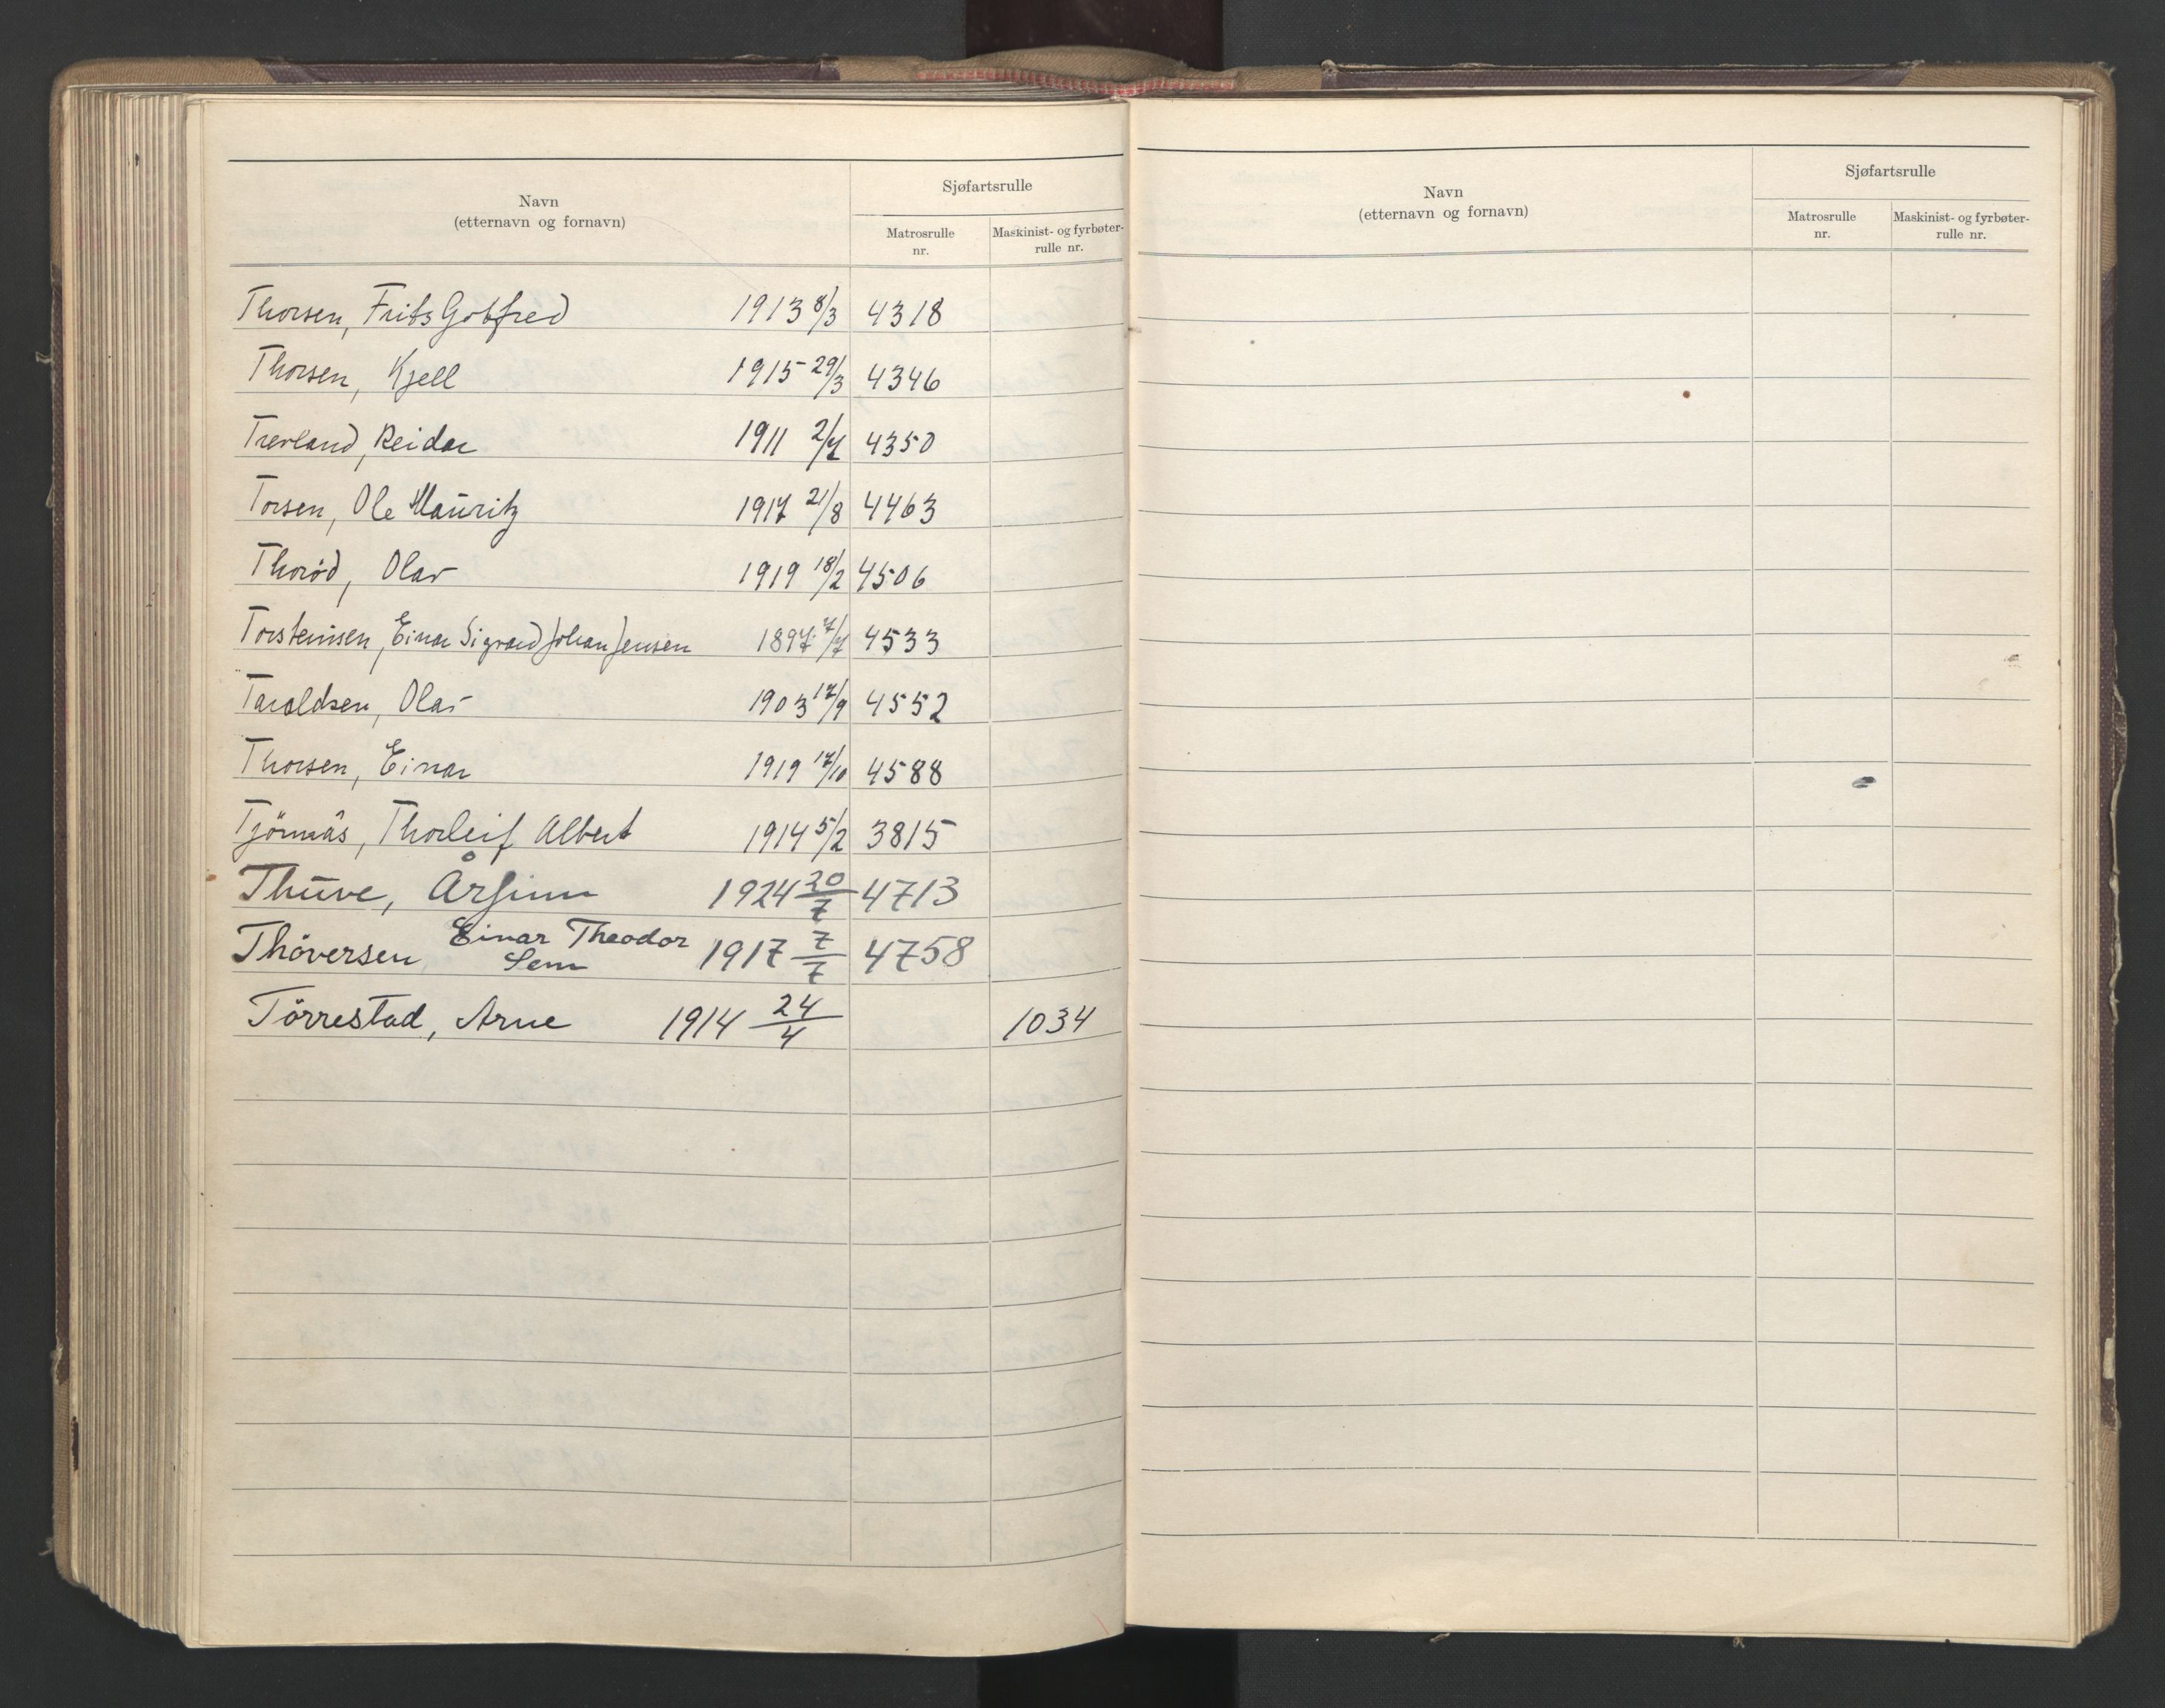 Navn
(etternavn og fornavn)
Sjøfartsrulle
Matrosrulle
nr.
Maskinist- og fyrbøter-
rulle nr.
Thorsen, Frits Gotfred 1913 8/3 4318
Thorsen, Kjell 1915 29/3 4346
Reidar 1911 4350
Torsen, Ole Mauritz 1917 21/8 4463
Thorød, Olav 1919 18/2 4506
Torsteinsen, Einar Sigvard Johan Jensen 1897 7/7 4533
Taraldsen, Olav 1903 17/9 4552
Thorsen, Einar 1919 17/10 4588
Tjönnås, Thorleif Albert 1914 5/2 3815
Thuve, Årfinn 1924 20/7 4713
Thöversen, Einar Theodor
Sem 1917 7/7 4758
Törrestad, Arne 1914 24/4 1034
Navn
(etternavn og fornavn)
Sjøfartsrulle
Matrosrulle
nr.
Maskinist- og fyrbøter-
rulle nr.